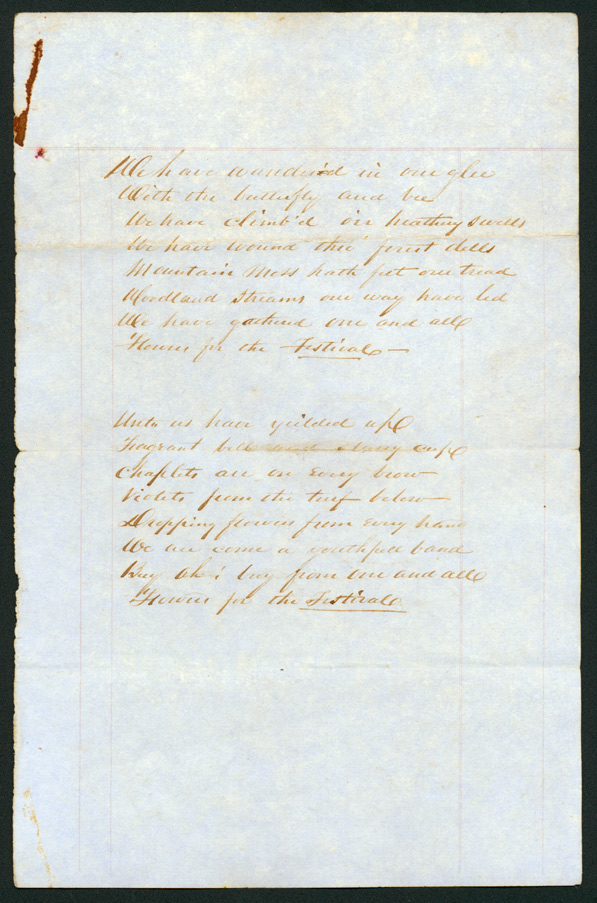 We have wander'd in our glee
With the butterfly and bee
We have climb'd on heathery swells
We have wound thro' forest dells
Mountain Moss hath felt our tread
Woodland Streams our way have led
We have gathered one and all
Flowers for the Festival—
Unto us have yeilded up
Fragrant bell and starry cup
Chaplets are on every brow
Violets from the turf below
Dropping flowers from every hand
We are come a youthfull band
Buy Oh! buy from one and all
Flowers for the Festival